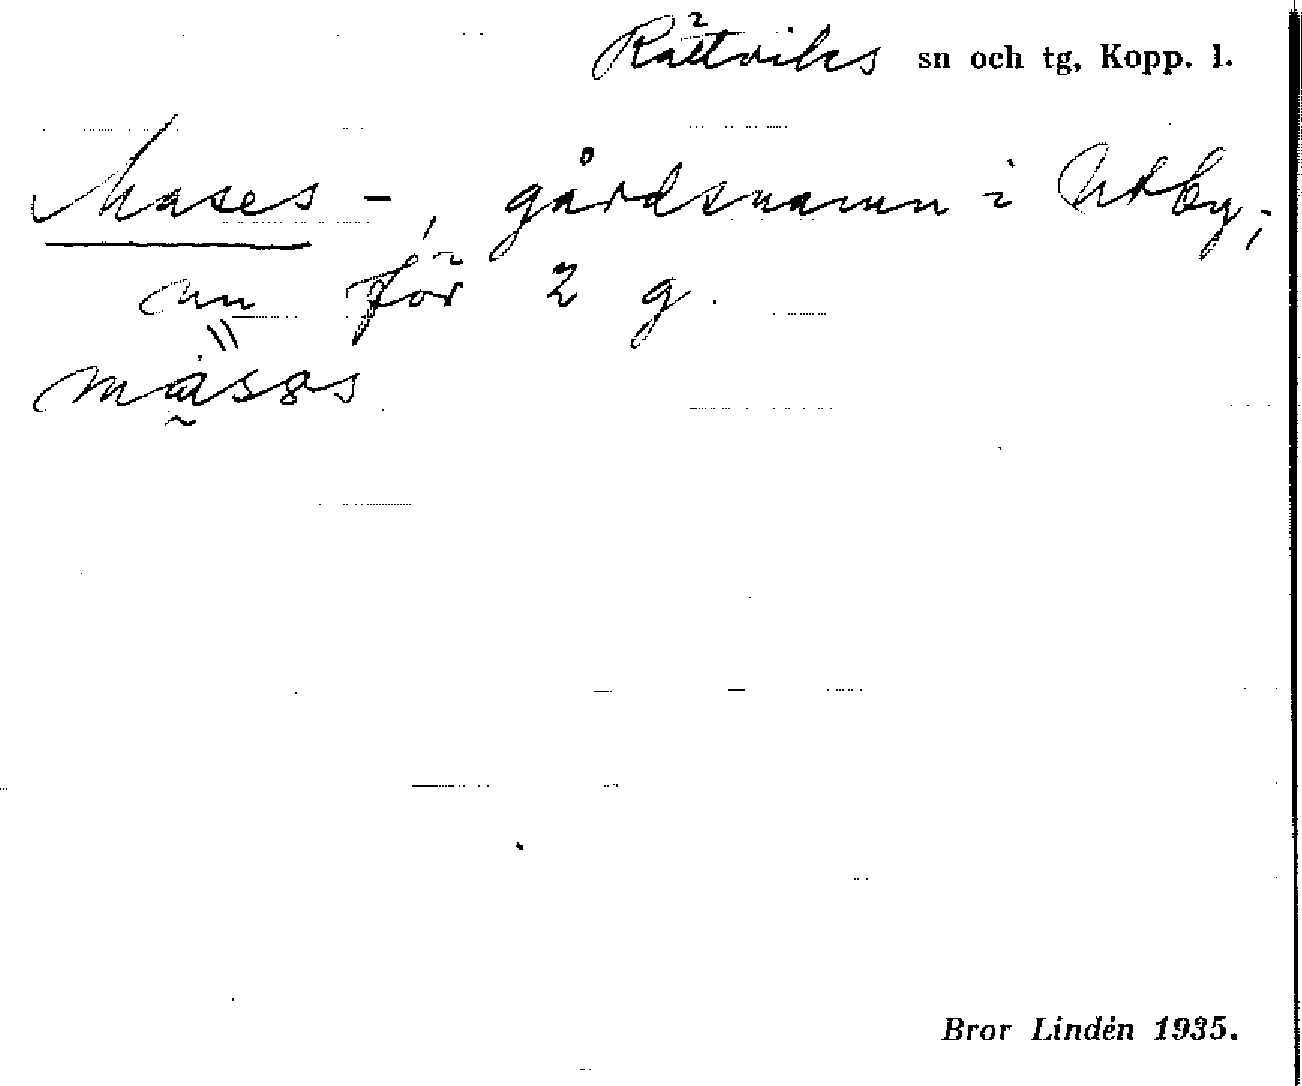 Rättviks sn och tg, Kopp. l.
Mases -, gårdsnamn i Utby;
nn för 2 g.
måsəs
Bror Lindén 1935.